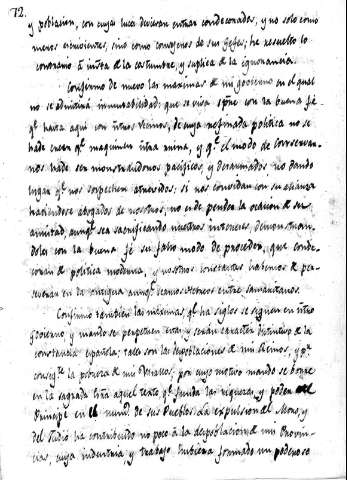 72.
y poblacion, con cuya luca devieran entrar condecorados, y no solo como
meros escrivientes, sino como consejeros de sus Gefes; he resuelto lo
contrario á vista de la costumbre, y suplica de la ignorancia.
Confirmo de nuevo las maximas de mi govierno en el qual
no se admitirá inmutabilidad: que se viva spre con la buena fé
qe hasta aqui con ntros vecinos, de cuya refinada politica no se
hade creer qe maquinen ntra ruina, y qe el modo de conservar-
nos hade ser monstrandonos pacificos, y desarmados no dando
lugar qe nos sospechen atrevidos: si nos convidan con su alianza
haciendose abogados de nosotros, no se de perder la ocacion de su
amistad, aunqe sea sacrificando nuestros intereses, demonstran-
doles con la buena fé su falso modo de proceder, que conde-
coran de politica moderna, y nosotros constantes habemos de per-
severar en la antigua aunqe seamos victimas entre samaritanos.
Confirmo tambien las maximas, qe ha siglos se siguen en ntro
Govierno y mando se perpetuen estas y serán caracter distintivo de la
constancia española; tales son las despoblaciones de mis Reinos, y pr
consigte la pobreza de mis Vasallos; por cuyo motivo mando se borre
en la sagrada Letra aquel texto qe funda las riquezas, y poder del
Principe en el num. de sus Pueblos. La expulsion del Moro, y
del Judio ha contribuido no poco á la despoblacion de mis Provin-
cias, cuya industria y trabajo hubiera formado un poderoso